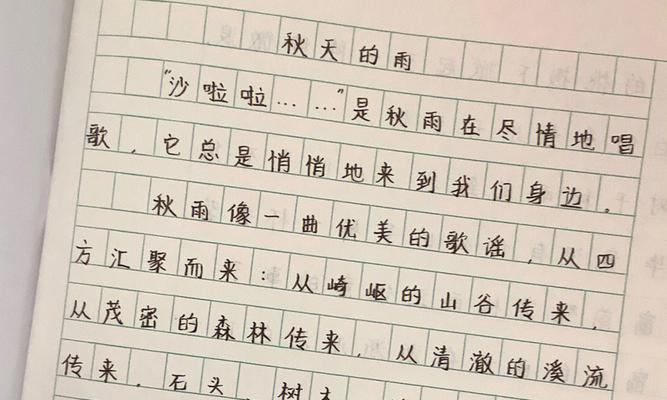 秋天的雨
“沙啦啦……”是秋雨在尽情地唱
歌，它总是悄悄地来到我们身边。
秋雨像一曲优美的歌谣，从四
方汇聚而来：从崎岖的山谷传来，
从茂密的森林传来，从清澈的溪流
传来，石头、树木